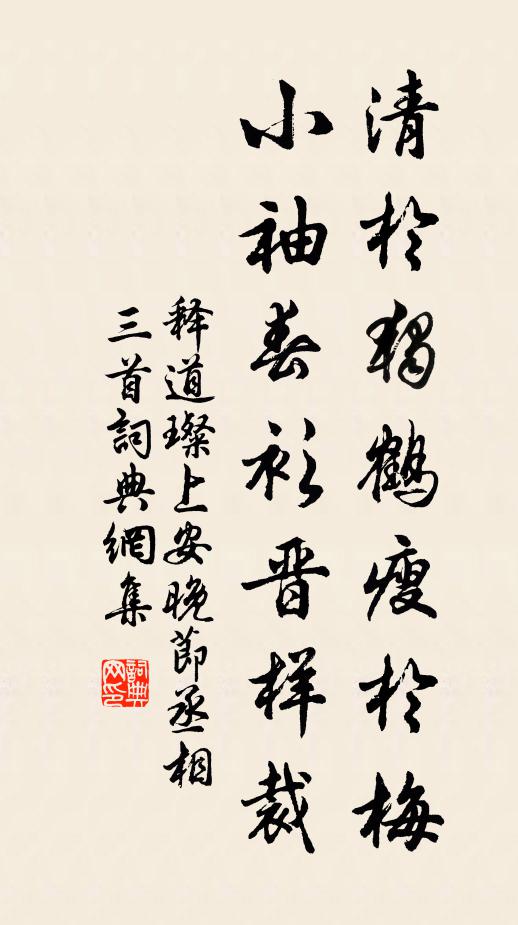 清於獨鶴瘦於梅
小袖春衫晋样裁
释道璨上安晚節丞相
三首詞典網集
詞典网印